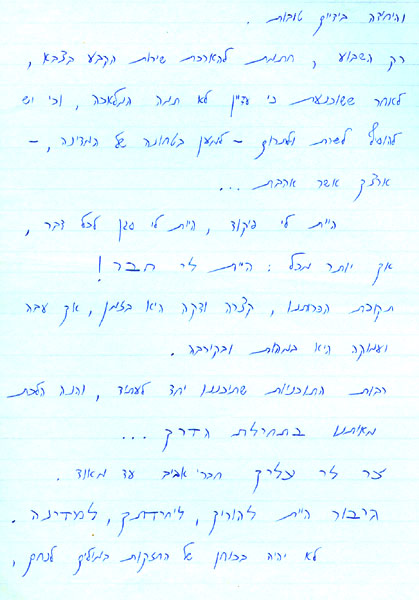 והיחידה בידיים טובות.
רק השבוע, חתמת להארכת שירות הקבע בצבא,
לאחר ששוכנעת כי עדיין לא תמה המלאכה, וכי יש
להוסיף לשרת ולתרום – למען בטחונה של המדינה, –
ארצך אשר אהבת ...
היית לי פיקוד, היית לי סגן לכל דבר,
אך יותר מכל: היית לי חבר!
תקופת הכרותנו, קצרה ודקה היא בזמן, אך עבה
ועמוקה היא במהות ובקורבה.
רבות התוכניות שתיכננו יחד לעתיד, והנה הלכת
מאיתנו בתחילת הדרך ...
צר לי עליך חברי אביב עד מאוד.
גיבור היית להוריך, ליחידתך, למדינה.
לא יהיה בכוחן של החזקות במילים לנחם,